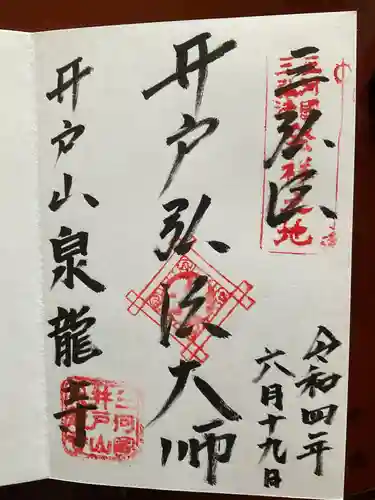 三弘法
令和四年
六月十九日
井戸弘法大師
井戸山泉龍寺
三河國
井戸山